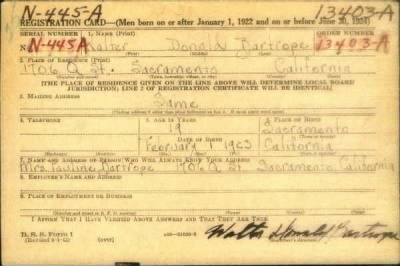 N-445-A 13403-A
REGISTRATION CARD—(Men born on or after January 1, 1922 and on or before June 30, 1924)
SERIAL NUMBER 1. NAME (Print) ORDER NUMBER
N-445A Walter Donald Bartrope 13403-A
2. PLACE OF RESIDENCE (Print)
1906 Q St. Sacramento California
[THE PLACE OF RESIDENCE GIVEN ON THE LINE ABOVE WILL DETERMINE LOCAL BOARD
JURISDICTION; LINE 2 OF REGISTRATION CERTIFICATE WILL BE IDENTICAL]
3. MAILING ADDRESS
Same
4. TELEPHONE 5. AGE IN YEARS 6. PLACE OF BIRTH
19 Sacramento
DATE OF BIRTH
February 1 1923 California
7. NAME AND ADDRESS OF PERSON WHO WILL ALWAYS KNOW YOUR ADDRESS
Mrs. Pauline Bartrope 1906 Q St Sacramento California
8. EMPLOYER'S NAME AND ADDRESS
9. PLACE OF EMPLOYMENT OR BUSINESS
I AFFIRM THAT I HAVE VERIFIED ABOVE ANSWERS AND THAT THEY ARE TRUE.
D. S. S. Form 1 (over)
Walter Donald Bartrope